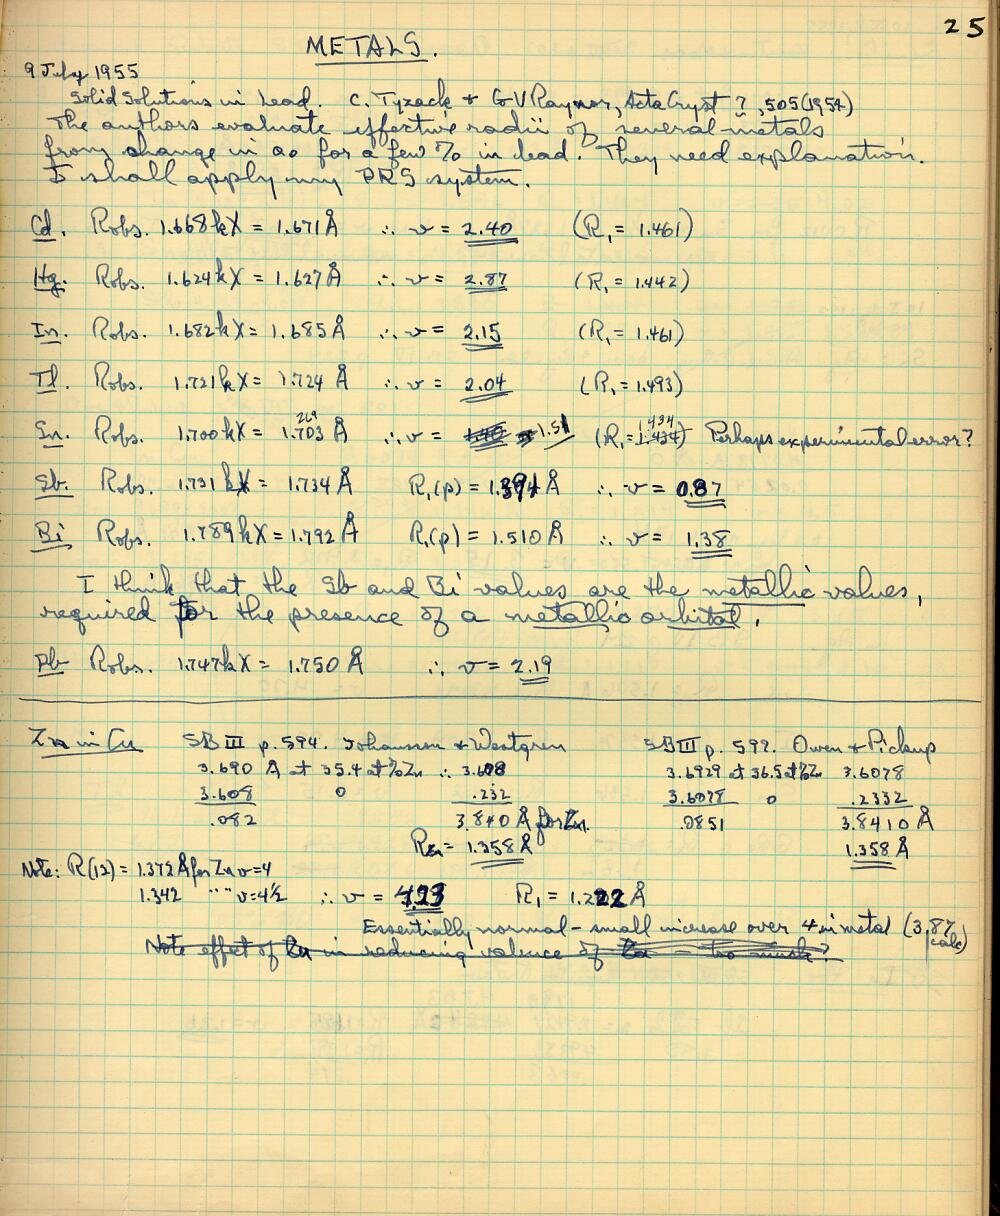 25
METALS.
9 July 1955
Solid Solutions in Lead. C. Tyzack & G V Raynor, Acta Cryst 7, 505 (1954)
The authors evaluate effective radii of several metals
from change in a0 for a few % in lead. They need explanation.
I shall apply my PRS system.
Cd. Robs. 1.668 kX = 1.671 Å ∴ v = 2.40 (R1 = 1.461)
Hg. Robs. 1.624 kX = 1.627 Å ∴ v = 2.87 (R1 = 1.442)
In. Robs. 1.682 kX = 1.685 Å ∴ v = 2.15 (R1 = 1.461)
Tl. Robs. 1.721 kX = 1.724 Å ∴ v = 2.04 (R1 = 1.493)
Sn. Robs. 1.700 kX = 1.703 Å ∴ v = 1.51 (R1 = 1.434) Perhaps experimental error?
Sb. Robs. 1.731 kX = 1.734 Å R1(p) = 1.394 Å ∴ v = 0.87
Bi Robs. 1.789 kX = 1.792 Å R1(p) = 1.510 Å ∴ v = 1.38
I think that the Sb and Bi values are the metallic values,
required for the presence of a metallic orbital.
Pb Robs. 1.747 kX = 1.750 Å ∴ v = 2.19
Zn in Cu SB III p. 594. Johansson & Westgren SB III p. 592. Owen & Pickup
3.690 Å at 35.4 at % Zn ∴ 3.608 3.6929 at 36.5 at % Zn 3.6078
3.608 0 .232 3.6078 0 .2332
.082 3.840 Å for Zn. .0851 3.8410 Å
RZn = 1.358 Å 1.358 Å
Note: R(12) = 1.372 Å for Zn v=4
1.342 " " v=4½ ∴ v = 4.23 R1 = 1.222 Å
Essentially normal - small increase over 4 in metal (3.87 calc)
Note effect of in reducing valence of – too much?